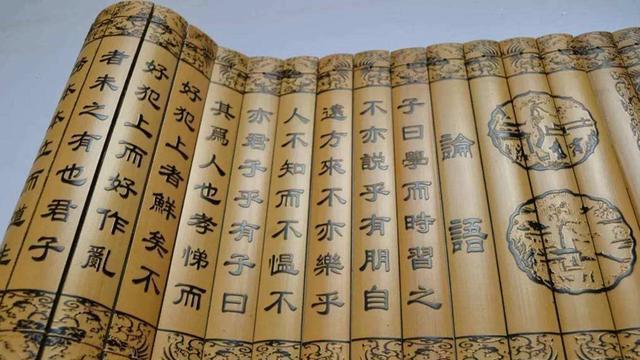 論語
子曰學而時習之
不亦説乎有朋自
遠方來不亦樂乎
人不知而不愠不
亦君子乎有子曰
其爲人也孝悌而
好犯上者鮮矣不
好犯上而好作亂
者未之有也君子
本本立而道生